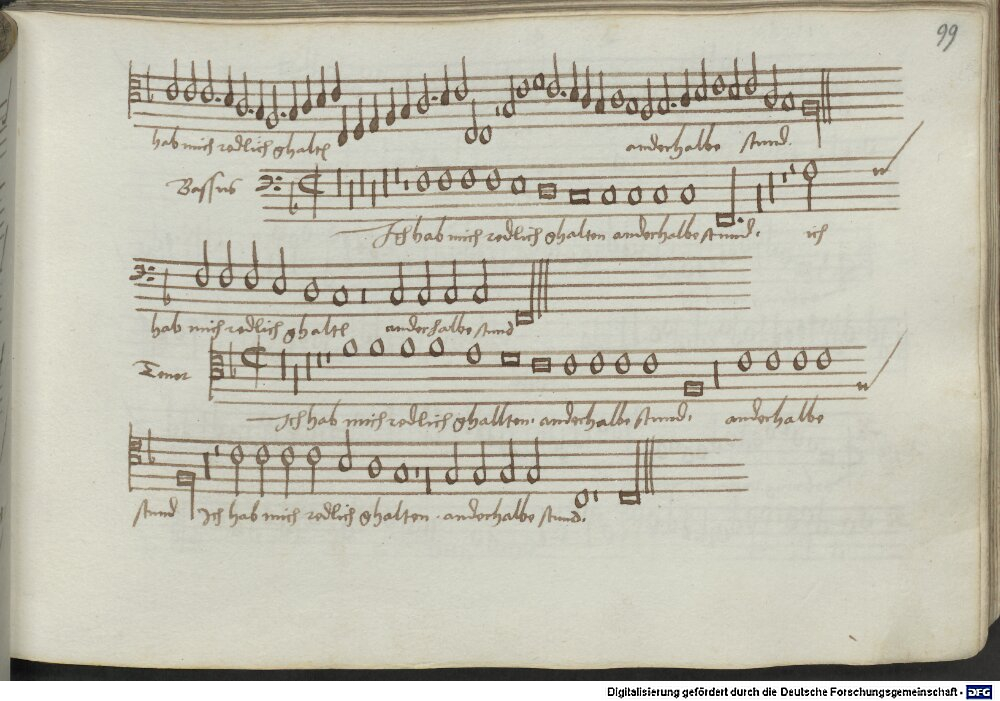 99
hab mich redlich ghalten anderhalbe stund.
Bassus
Ich hab mich redlich ghalten anderhalbe stund. ich
hab mich redlich ghalten anderhalbe stund
Tenor
Ich hab mich redlich ghallten. anderhalbe stund. anderhalbe
stund Ich hab mich redlich ghalten. anderhalbe stund.
Digitalisierung gefördert durch die Deutsche Forschungsgemeinschaft - DFG